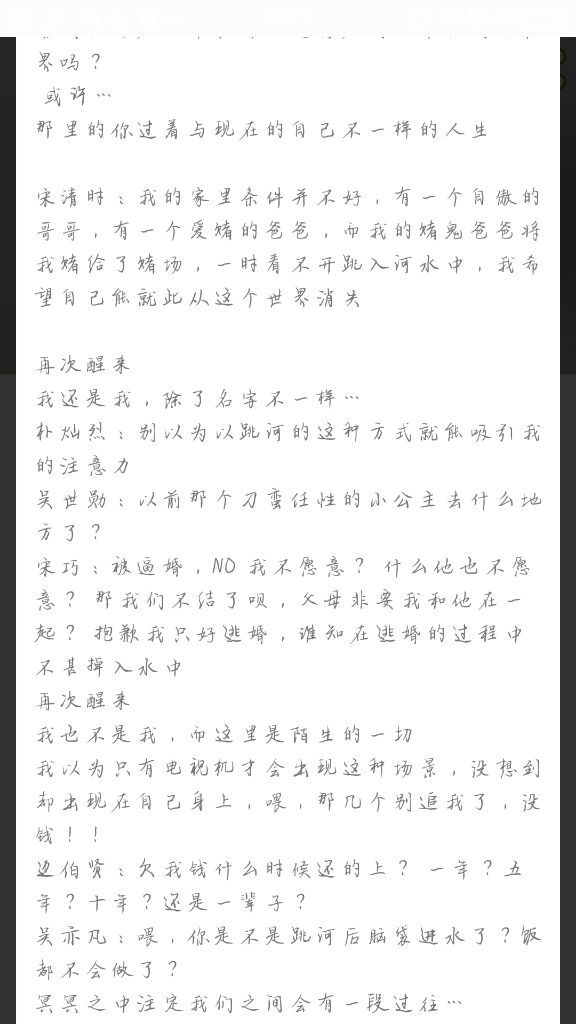 界吗？
或许…
那里的你过着与现在的自己不一样的人生
宋清时：我的家里条件并不好，有一个自傲的
哥哥，有一个爱赌的爸爸，而我的赌鬼爸爸将
我赌给了赌场，一时看不开跳入河水中，我希
望自己能就此从这个世界消失
再次醒来
我还是我，除了名字不一样…
朴灿烈：别以为以跳河的这种方式就能吸引我
的注意力
吴世勋：以前那个刁蛮任性的小公主去什么地
方了？
宋巧：被逼婚，NO 我不愿意？ 什么他也不愿
意？ 那我们不结了呗，父母非要我和他在一
起？ 抱歉我只好逃婚，谁知在逃婚的过程中
不甚掉入水中
再次醒来
我也不是我，而这里是陌生的一切
我以为只有电视机才会出现这种场景，没想到
却出现在自己身上，喂，那几个别追我了，没
钱！！
边伯贤：欠我钱什么时候还的上？ 一年？五
年？十年？还是一辈子？
吴亦凡：喂，你是不是跳河后脑袋进水了？饭
都不会做了？
冥冥之中注定我们之间会有一段过往…